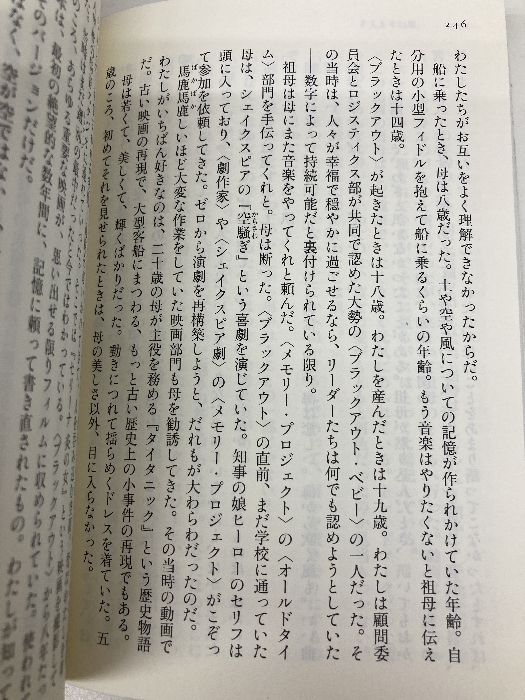 246
わたしたちがお互いをよく理解できなかったからだ。
船に乗ったとき、母は八歳だった。土や空や風についての記憶が作られかけていた年齢。自
分用の小型フィドルを抱えて船に乗るくらいの年齢。もう音楽はやりたくないと祖母に伝え
たときは十四歳。
〈ブラックアウト〉が起きたときは十八歳。わたしを産んだときは十九歳。わたしは顧問委
員会とロジスティクス部が共同で認めた大勢の〈ブラックアウト・ベビー〉の一人だった。そ
の当時は、人々が幸福で穏やかに過ごせるなら、リーダーたちは何でも認めようとしていた
――数字によって持続可能だと裏付けられている限り。
祖母は母にまた音楽をやってくれと頼んだ。〈メモリー・プロジェクト〉の〈オールドタイ
ム〉部門を手伝ってくれと。母は断った。〈ブラックアウト〉の直前、まだ学校に通っていた
母は、シェイクスピアの『空騒ぎ』という喜劇を演じていた。知事の娘ヒーローのセリフは
頭に入っており、〈劇作家〉や〈シェイクスピア劇〉の〈メモリー・プロジェクト〉がこぞっ
て参加を依頼してきた。ゼロから演劇を再構築しようと、だれもが大わらわだったのだ。
馬鹿馬鹿しいほど大変な作業をしていた映画部門も母を勧誘してきた。その当時の動画で
わたしがいちばん好きなのは、二十歳の母が主役を務める『タイタニック』という歴史物語
だ。古い映画の再現で、大型客船にまつわる、もっと古い歴史上の小事件の再現でもある。
母は若くて、美しくて、輝くばかりだった。動きにつれて揺らめくドレスを着ていた。五
歳のころ、初めてそれを見せられたときは、母の美しさ以外、目に入らなかった。